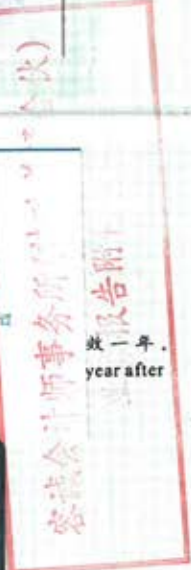 容诚会计师事务所(
合伙)
报告附
效一年.
year after